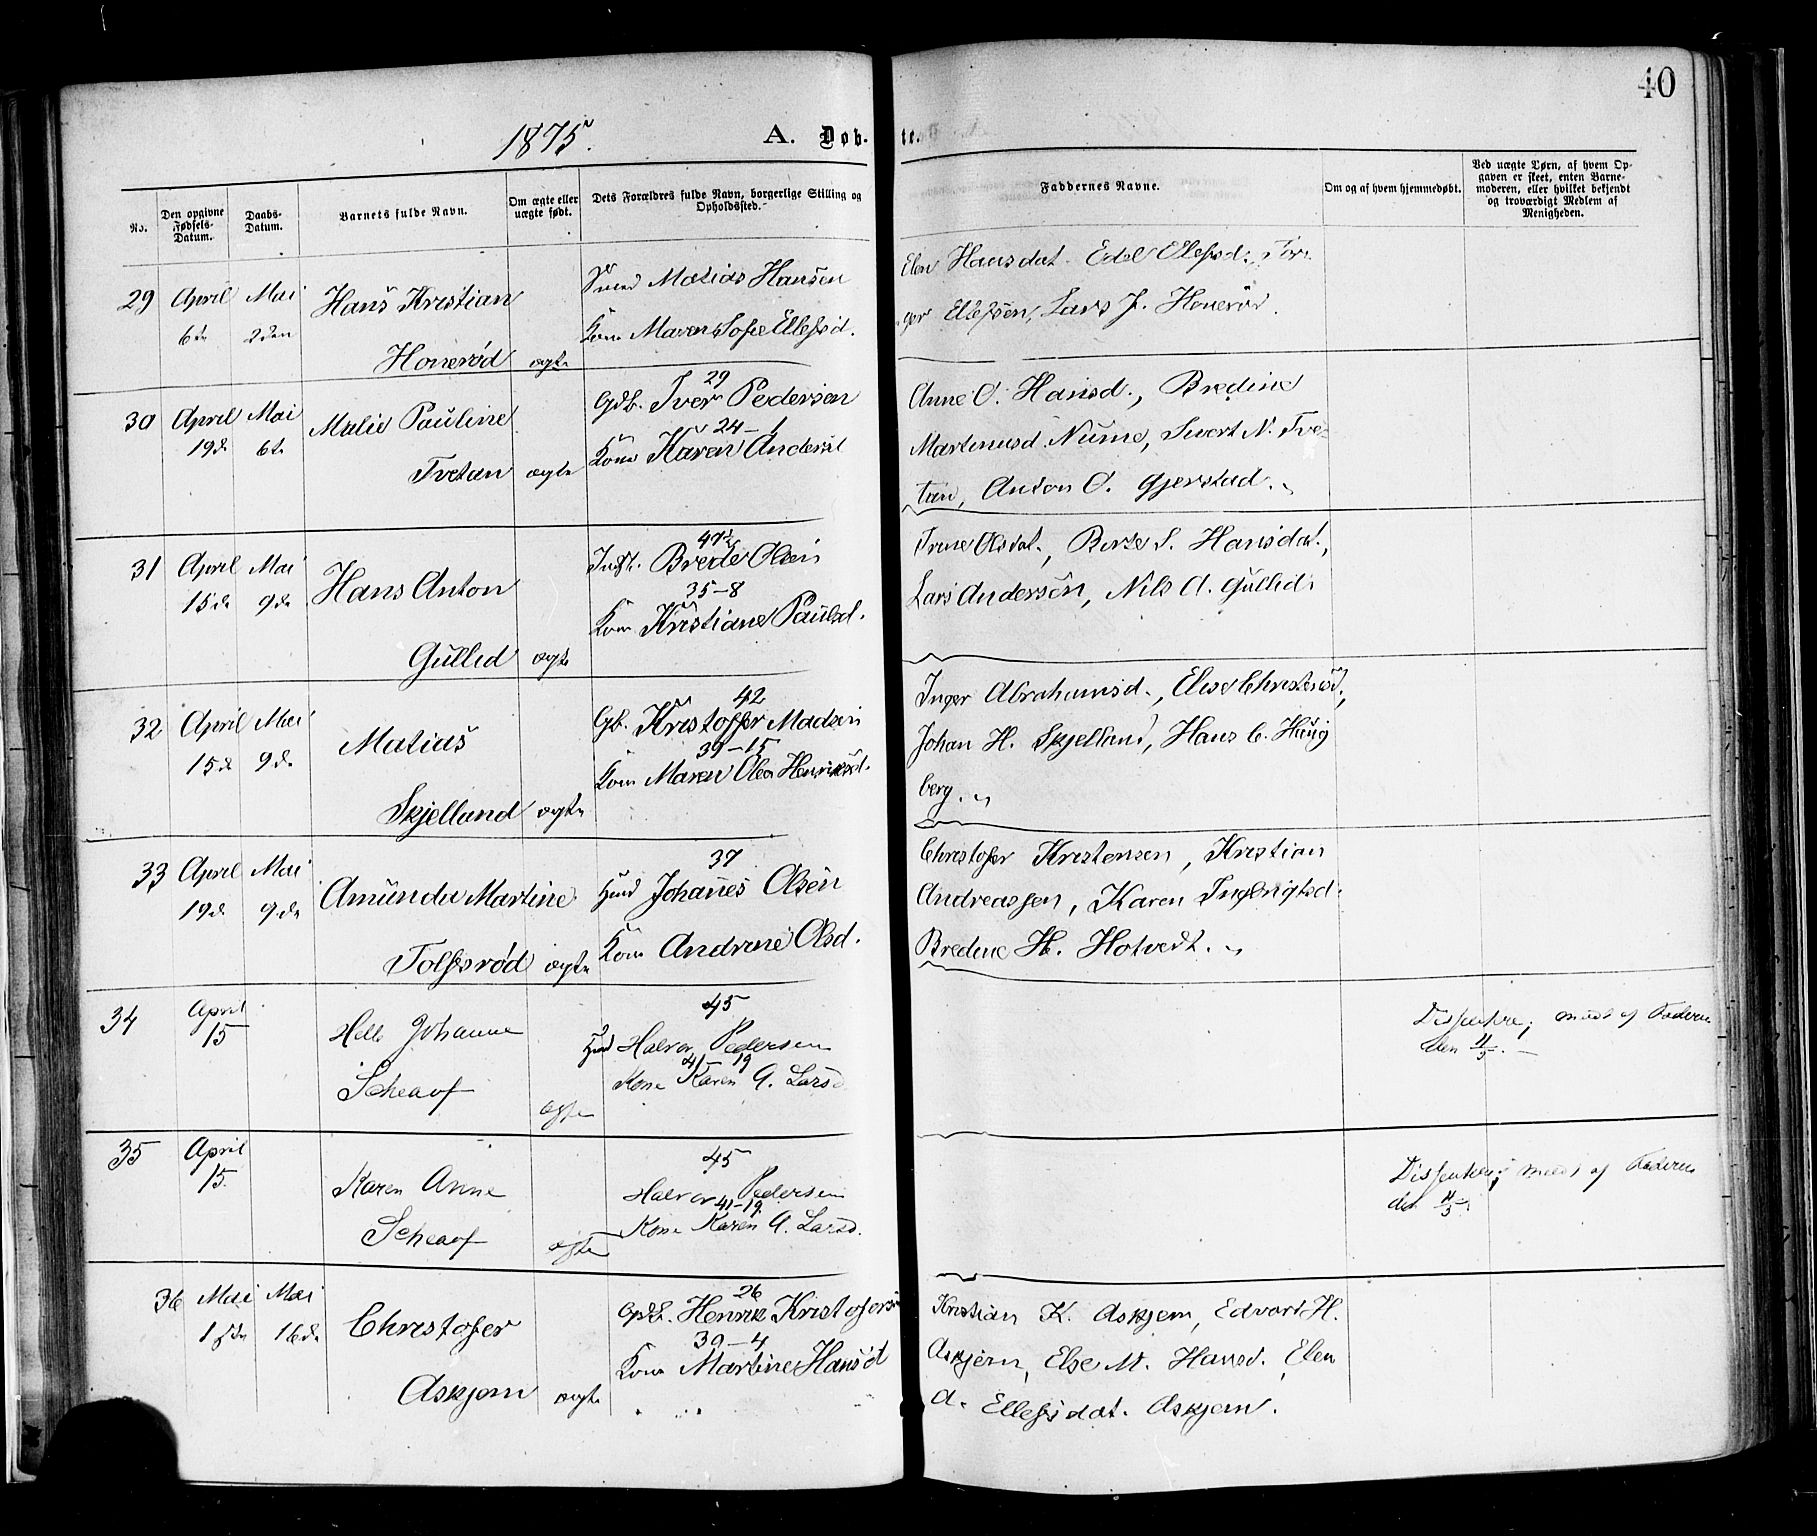 40
1875.
A. Døb-
te.
No.
Den opgivne Fødsels-Datum.
Daabs-Datum.
Barnets fulde Navn.
Om ægte eller uægte født.
Dets Forældres fulde Navn, borgerlige Stilling og Opholdssted.
Faddernes Navne.
Om og af hvem hjemmedøbt.
Ved uægte Børn, af hvem Opgaven er skeet, enten Barnemoderen, eller hvilket bekjendt og troværdigt Medlem af Menigheden.
29 April 6te Mai 2den Hans Kristian
Honerød ægte
Matias Hansen
Kone Maren Sofie Ellefsd.
Elen Hansdat. Edel Ellefsd. Tor-
ger Ellefsen, Lars J. Honerød.
30 April 19de Mai 6te Malie Pauline
Tvetan ægte
29
Gdb. Iver Pedersen
24-1
Kone Karen Andersd
Anne O. Hansd., Bredine
Martinusd. Nume, Sivert N. Tve-
tan, Anton O. Gjerstad.
31 April 15de Mai 9de Hans Anton
Gullid ægte
47
Inds. Brede Olsen
35-8
Kone Kristiane Paulsd.
Trine Olsdat., Berte S. Hansdat.,
Lars Andersen, Nils A. Gullid.
32 April 15de Mai 9de Matias
Skjelland ægte
42
Gb. Kristoffer Madsen
39-15
Kone Maren Olea Henriksd.
Inger Abrahamsd., Else Christensd.,
Johan H. Skjelland, Hans C. Haug
berg.
33 April 19de Mai 9de Amunda Martine
Tolfsrød ægte
37
Husmd Johanes Olsen
Kone Andrine Olsd.
Christofer Kristensen, Kristian
Andreassen, Karen Ingebrigtsd.
Bredine H. Hotvedt.
34 April 15 Helle Johanne
Scheaof ægte
45
Husmd Halvor Pedersen
41-19
Kone Karen A. Larsd
Dissentere; meldt af Faderen
den 11/5.
35 April 15. Karen Anne
Scheaof ægte
45
Halvor Pedersen
41-19.
Kone Karen A. Larsd.
Dissentere; meldt af Faderen
den 11/5.
36 Mai 1ste Mai 16de Christofer
Askjem ægte
26
Gdb. Henrik Kristofersen
30-4
Kone Martine Hansd
Kristian K. Askjem, Edvart H.
Askjem, Else M. Hansd. Elen
A. Ellefsdat. Askjem.